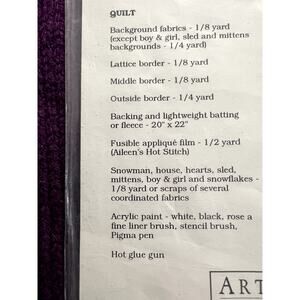 QUILT
Background fabrics - 1/8 yard
(except boy & girl, sled and mittens
backgrounds - 1/4 yard)
Lattice border - 1/8 yard
Middle border - 1/8 yard
Outside border - 1/4 yard
Backing and lightweight batting
or fleece - 20" x 22"
Fusible appliqué film - 1/2 yard
(Aileen's Hot Stitch)
Snowman, house, hearts, sled,
mittens, boy & girl and snowflakes -
1/8 yard or scraps of several
coordinated fabrics
Acrylic paint - white, black, rose a
fine liner brush, stencil brush,
Pigma pen
Hot glue gun
ART